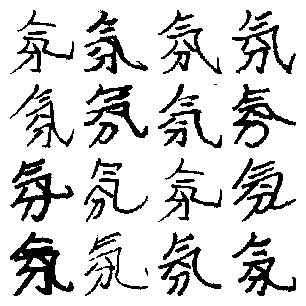 氛氛氛氛
氛氛氛氛
氛氛氛氛
氛氛氛氛